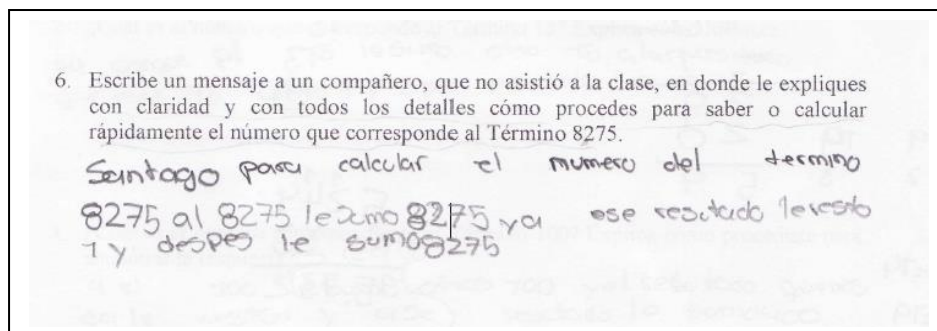 6. Escribe un mensaje a un compañero, que no asistió a la clase, en donde le expliques
con claridad y con todos los detalles cómo procedes para saber o calcular
rápidamente el número que corresponde al Término 8275.
Santago para calcular el numero del termino
8275 al 8275 le sumo 8275 y a ese resultado le resto
1 y despes le sumo 8275